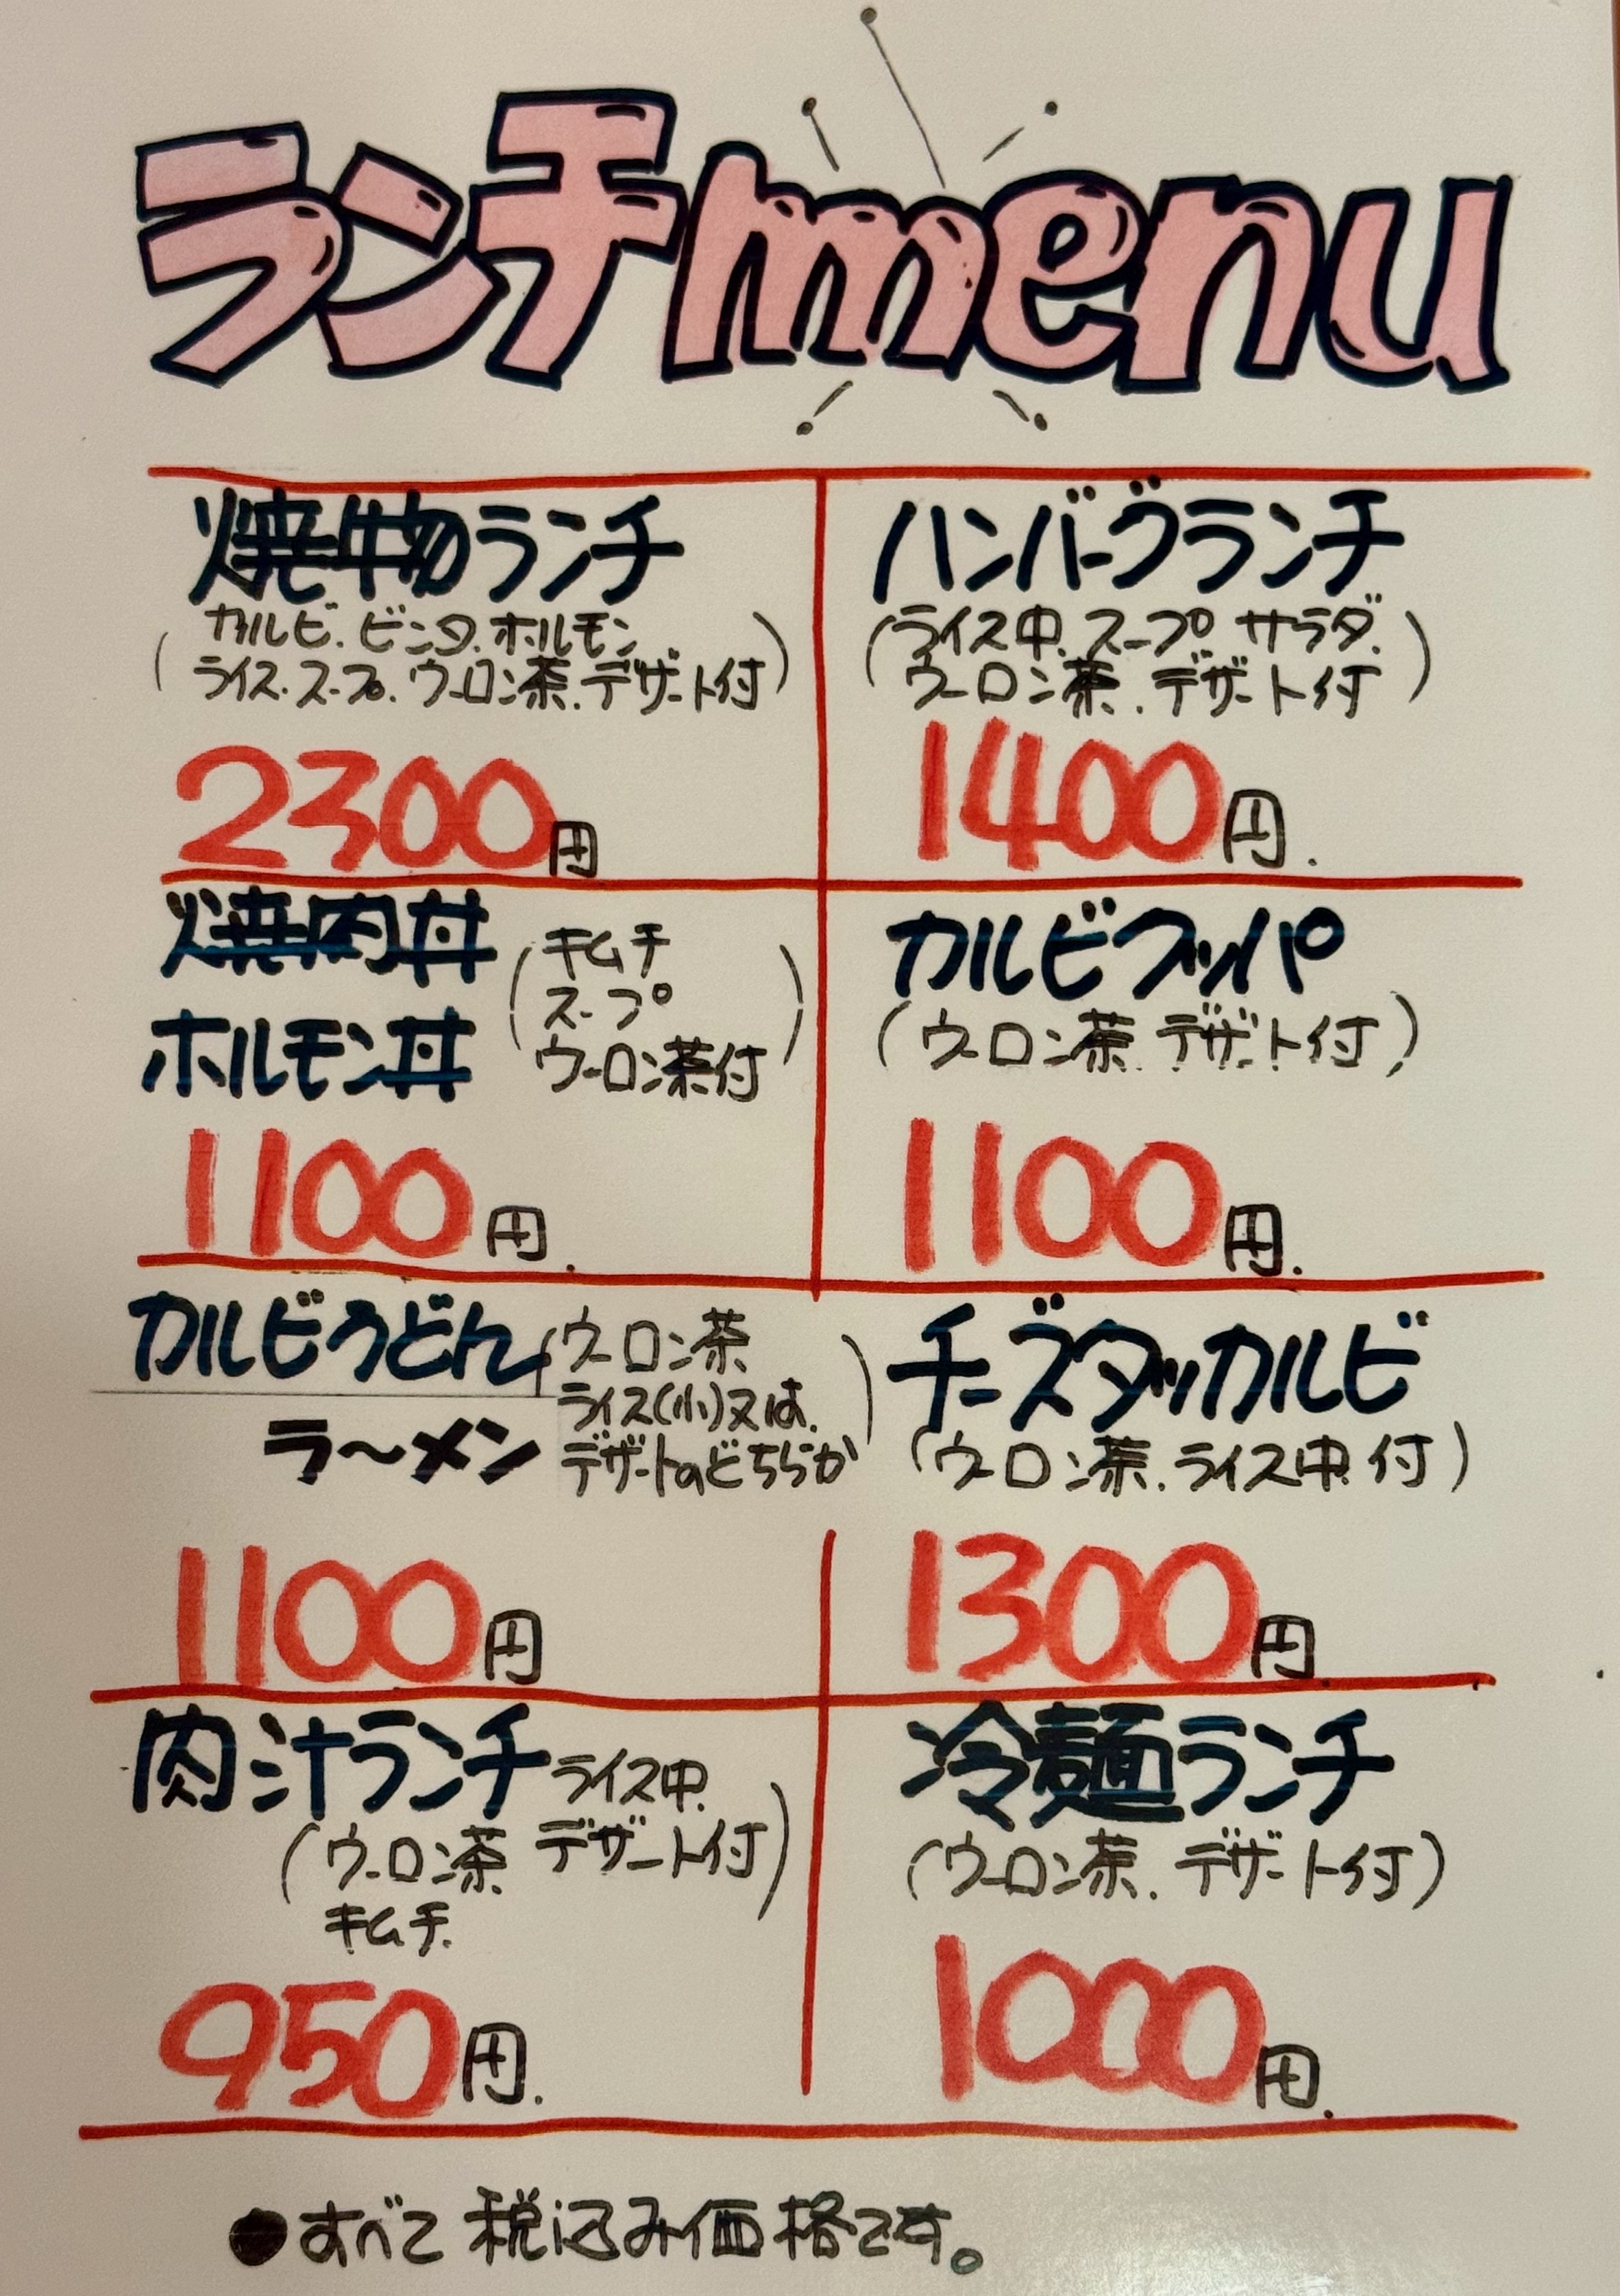 ランチmenu
焼物ランチ
(カルビ.ビンタ.ホルモン
ライス.スープ.ウーロン茶.デザート付)
2300円
ハンバーグランチ
(ライス中.スープ サラダ.
ウーロン茶.デザート付)
1400円.
焼肉丼
ホルモン丼
(キムチ
スープ
ウーロン茶付)
1100円.
カルビクッパ
(ウーロン茶.デザート付)
1100円.
カルビうどん
ラ〜メン
(ウーロン茶
ライス(小)又は.
デザートのどちらか)
1100円
チーズタッカルビ
(ウーロン茶.ライス中付)
1300円.
肉汁ランチ ライス中.
(ウーロン茶 デザート付)
キムチ.
950円.
冷麺ランチ
(ウーロン茶.デザート付)
1000円.
●すべて税込み価格です。